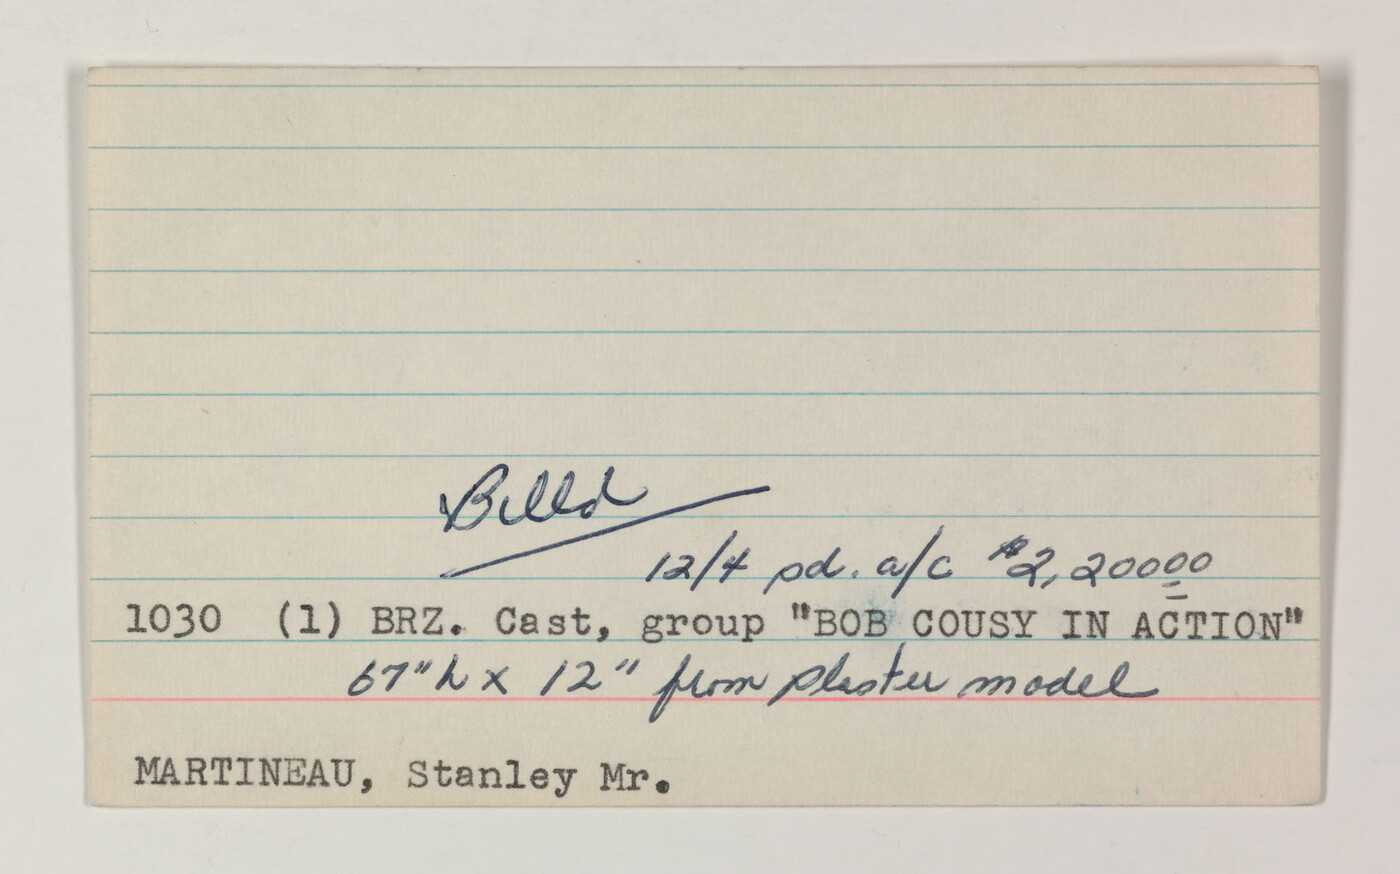 Billd
12/4 pd. a/c $2,20000
1030 (1) BRZ. Cast, group "BOB COUSY IN ACTION"
67"h x 12" from plaster model
MARTINEAU, Stanley Mr.